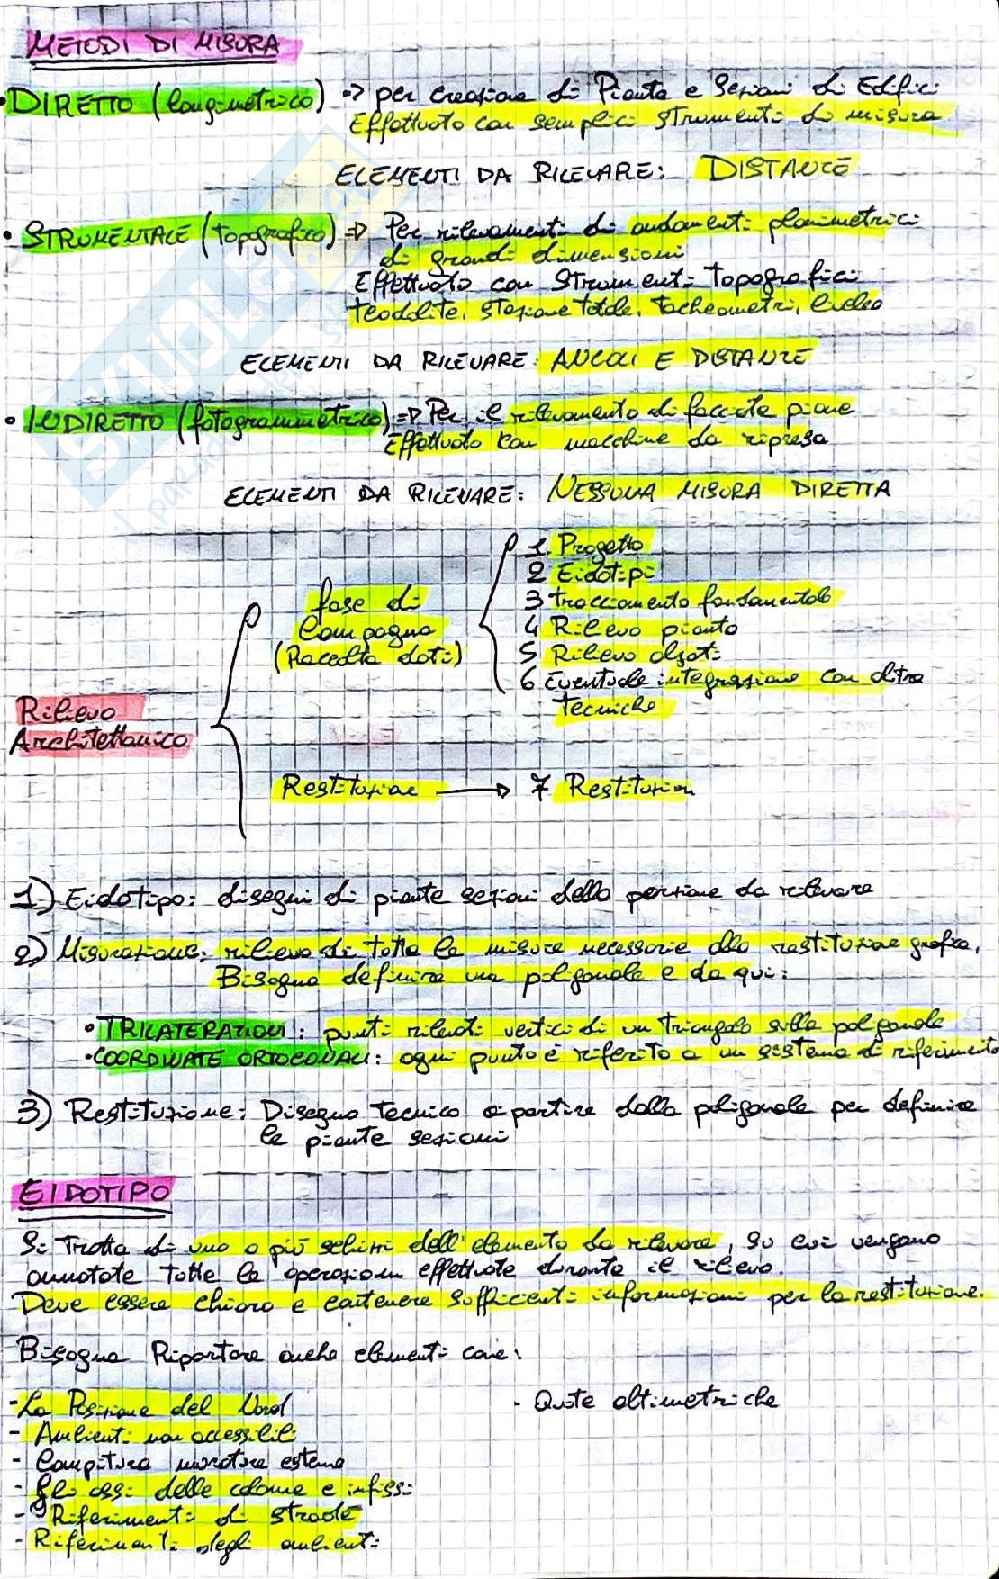 METODI DI MISURA
• DIRETTO (longimetrico) => per creazione di Pianta e Sezioni di Edifici
Effettuato con semplici strumenti di misura
ELEMENTI DA RILEVARE: DISTANZE
• STRUMENTALE (topografico) => Per rilevamenti di andamenti planimetrici
di grandi dimensioni
Effettuato con Strumenti topografici
teodolite, stazione totale, tacheometri,
ELEMENTI DA RILEVARE: ANGOLI E DISTANZE
• INDIRETTO (fotogrammetrico) => Per il rilevamento di facciate piane
Effettuato con macchine da ripresa
ELEMENTI DA RILEVARE: NESSUNA MISURA DIRETTA
1. Progetto
fase di
2 Eidotipi
Campagna
3 tracciamento fondamentale
(Raccolta dati)
4 Rilievo pianta
5 Rilievo alzati
6 Eventuale integrazione con altre
tecniche
Rilievo
Architettonico
Restituzione → 7 Restituzion
1) Eidotipo: disegni di piante sezioni della porzione da rilevare
2) Misurazione: rilievo di tutte le misure necessarie alla restituzione grafica.
Bisogna definire una poligonale e da qui:
• TRILATERAZIONI: punti rilevati vertici di un triangolo sulla poligonale
• COORDINATE ORTOGONALI: ogni punto è riferito a un sistema di riferimento
3) Restituzione: Disegno tecnico a partire dalla poligonale per definire
le piante sezioni
EIDOTIPO
Si Tratta di uno o più schizzi dell'elemento da rilevare, su cui vengono
annotate tutte le operazioni effettuate durante il rilievo.
Deve essere chiaro e contenere sufficienti informazioni per la restituzione.
Bisogna Riportare anche elementi come:
- La Posizione del Nord
- Quote altimetriche
- Ambienti non accessibili
- Campitura murature esterne
- Gli assi delle colonne e infissi
- Riferimenti di strade
- Riferimenti degli ambienti